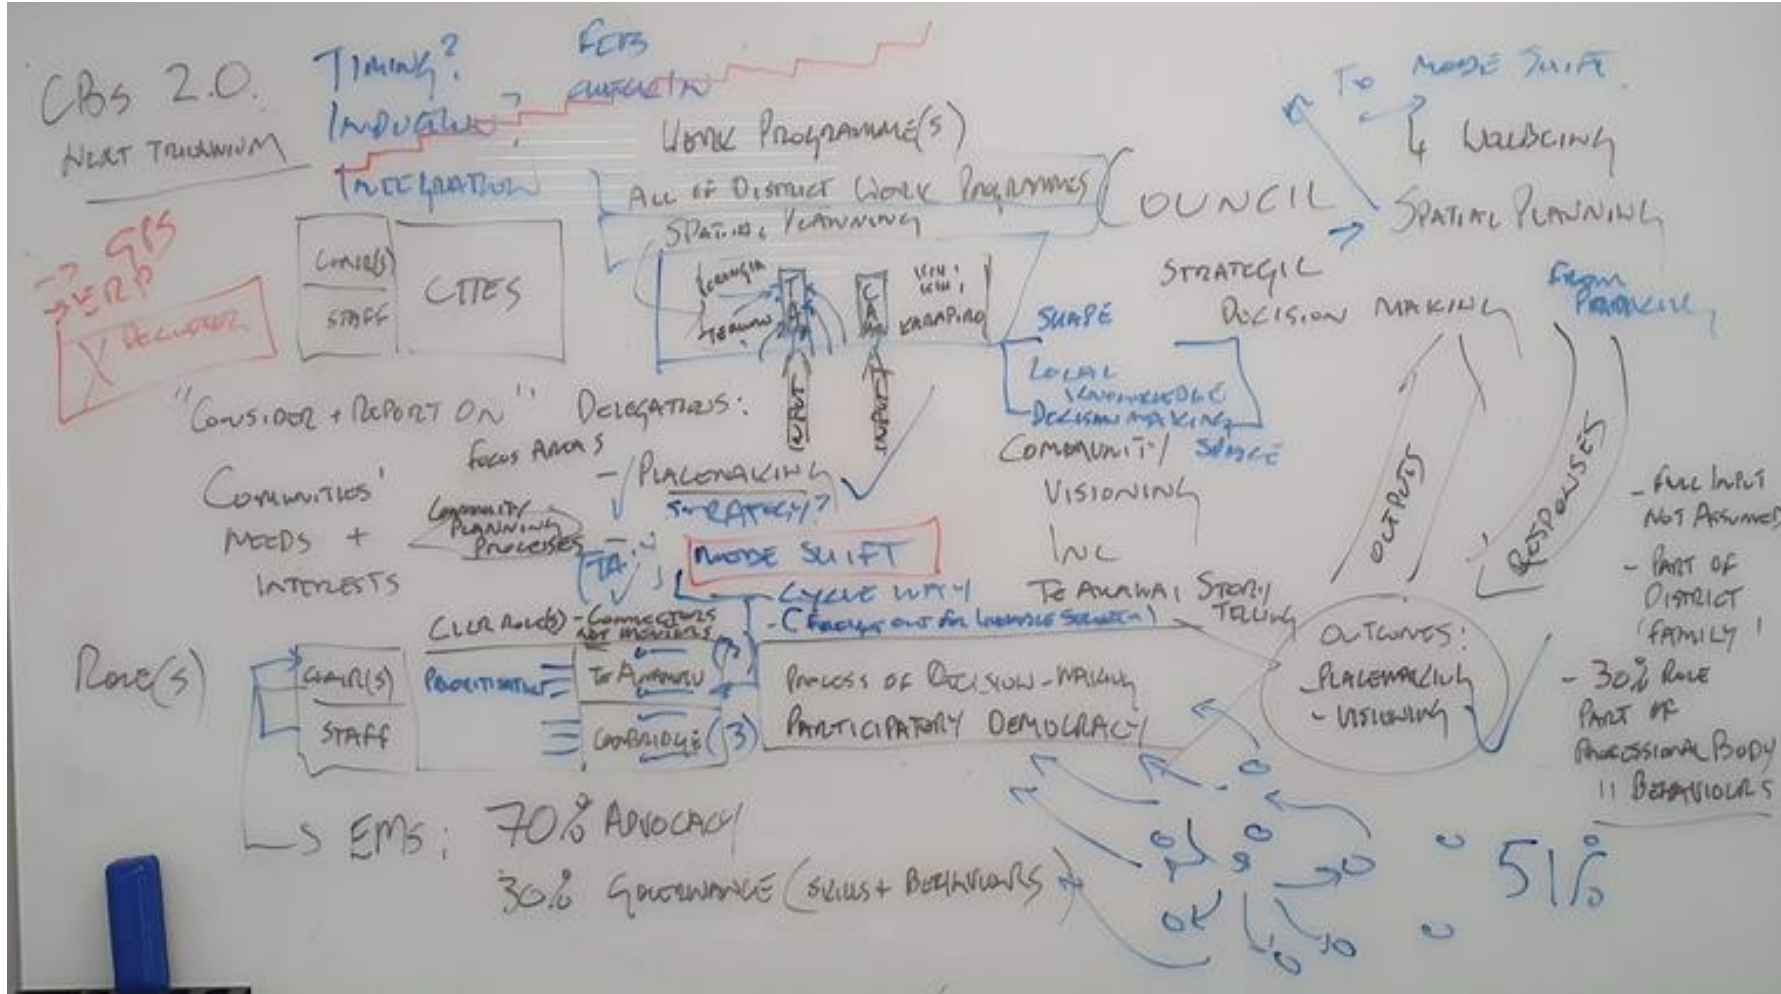 CBs 2.0.
NEXT TRIENNIUM
TIMING?
FEB
INDUCTION
INTEGRATION
WORK PROGRAMME(S)
ALL OF DISTRICT WORK PROGRAMMES
SPATIAL PLANNING
COUNCIL
TO MODE SHIFT
4 WELLBEING
SPATIAL PLANNING
STRATEGIC
DECISION MAKING
FROM
→ GPS
→ ERP
CHAIR(S)
STAFF
CTTES
TA
CAM
KARAPIRO
INPUT
INPUT
SHAPE
LOCAL
KNOWLEDGE
DECISION MAKING
SPACE
"CONSIDER + REPORT ON"
DELEGATIONS:
FOCUS AREAS
- PLACEMAKING
STRATEGY?
COMMUNITIES'
NEEDS +
INTERESTS
COMMUNITY
PLANNING
PROCESSES
(TA:
MODE SHIFT
CYCLE WAY
COMMUNITY
VISIONING
INC
TE AWAMUTU STORY
TELLING
OUTPUTS
RESPONSES
- FULL INPUT
NOT ASSUMED
- PART OF
DISTRICT
'FAMILY'
- 30% ROLE
PART OF
PROFESSIONAL BODY
" BEHAVIOURS
CLLR ROLE(S) - CONNECTORS
NOT MEMBERS
ROLE(S)
CHAIR(S)
STAFF
PRIORITISATION
TE AWAMUTU
CAMBRIDGE (3)
PROCESS OF DECISION-MAKING
PARTICIPATORY DEMOCRACY
OUTCOMES:
- PLACEMAKING
- VISIONING
EMS: 70% ADVOCACY
30% GOVERNANCE (SKILLS + BEHAVIOURS)
51%